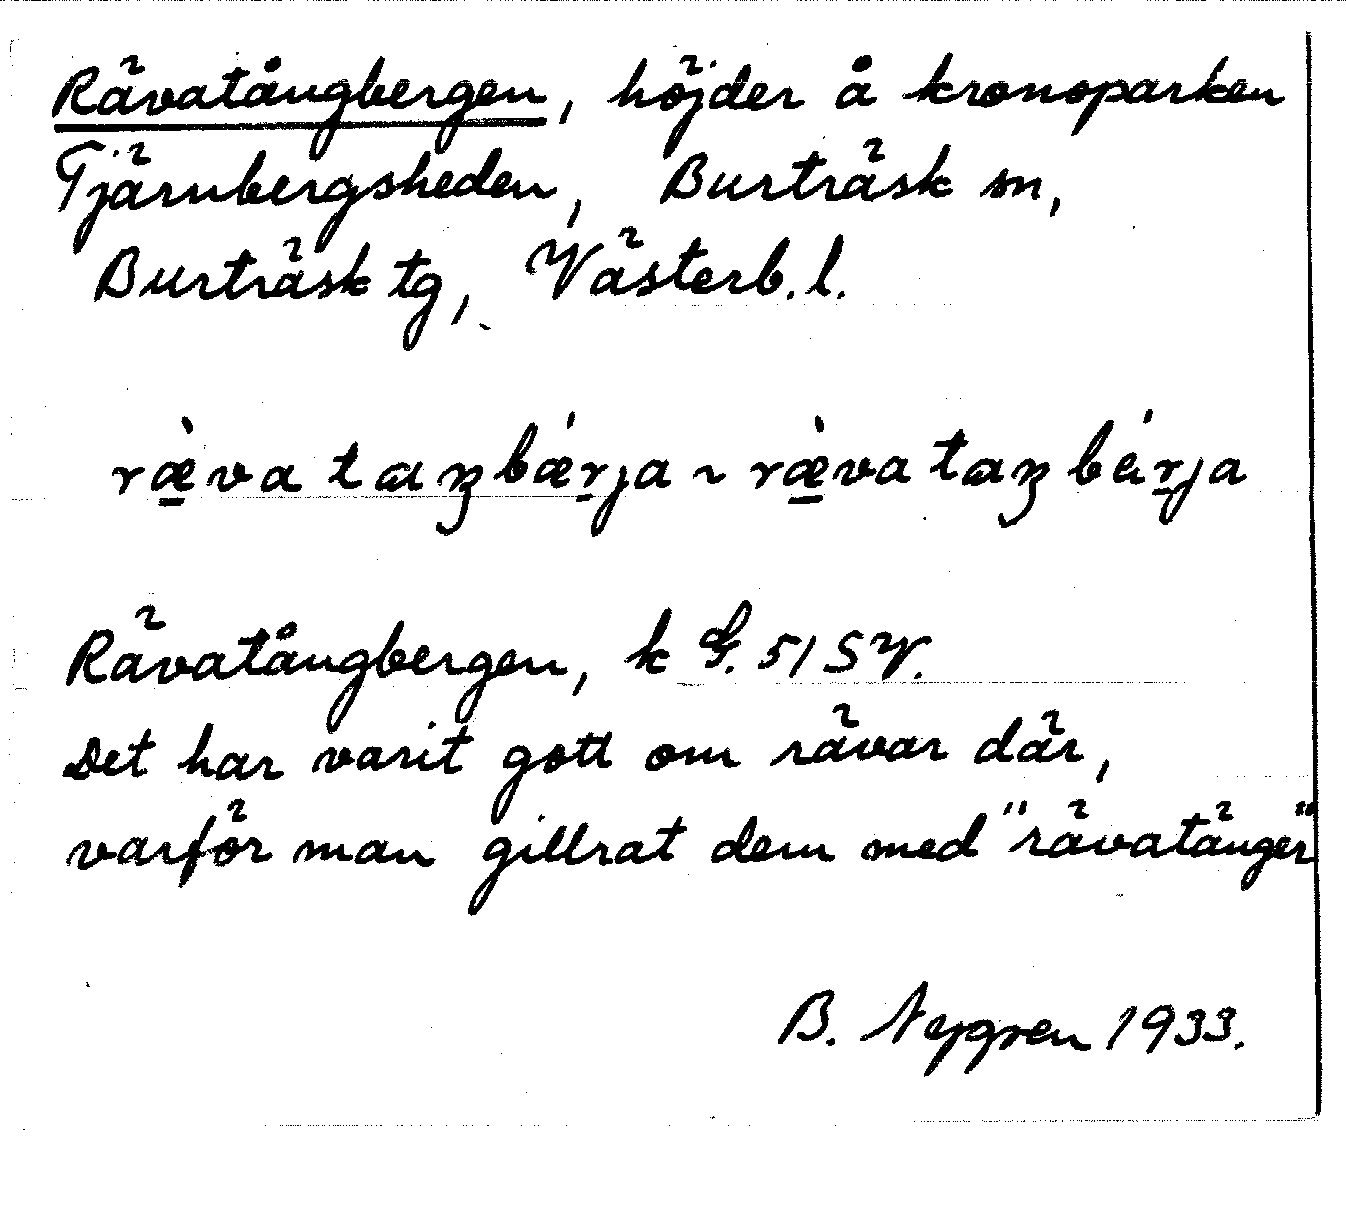 Rävatångbergen, höjder å kronoparken
Tjärnbergsheden, Burträsk sn,
Burträsk tg, Västerb. l.
ræ̀va taŋbǽrja ~ ræ̀va taŋbárja
Rävatångbergen, k G. 51 SV.
Det har varit gott om rävar där,
varför man gillrat dem med "rävatänger"
B. Nygren 1933.